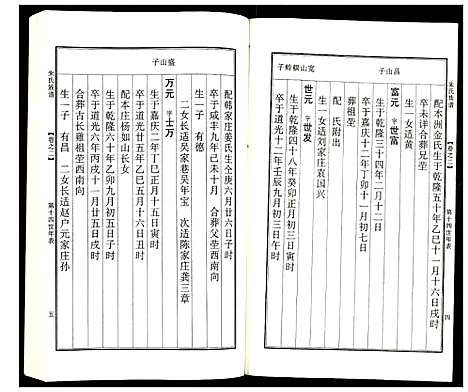 朱氏族谱
【卷之二】
第十四世年表
四
昌山子
配本洲金氏生于乾隆五十年乙巳十一月十六日戌时
卒未详合葬兄茔
生一女适黄
富元 字世富
生于乾隆三十四年二月十二日
卒于嘉庆十二年丁卯十一月初七日
葬祖茔
配氏附出
生一女适刘家庄袁国兴
世元 字世发
生于乾隆四十八年癸卯正月初三日寅时
卒于道光十二年壬辰九月初三日午时
宽山嗣蛉子
盛山子
配韩家庄姜氏生仝庚六月廿五日戌时
卒于咸丰九年己未十月 合葬父茔西南向
生一子 有德
二女长适吴家巷吴年宝 次适陈家庄龚三章
万元 字士万
生于嘉庆二年丁巳正月十五日寅时
卒于道光廿五年乙巳六月十六日丑时
配本庄杨如山长女
生于乾隆六十年乙卯九月初五日子时
卒于道光六年丙戌十一月廿五日戌时
合葬古长雞祖茔西南向
生一子 有昌 二女长适赵户元家庄孙
朱氏族谱
【卷之二】
第十四世年表
五